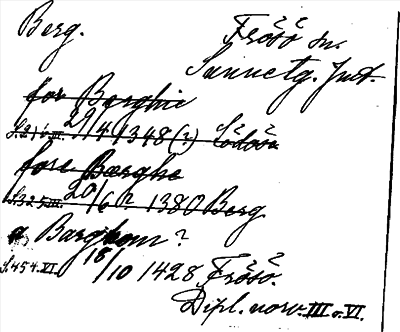 Berg. Frösö sn.
Sunne tg. Jmt.
for Berghie
S. 216 III. 29/4 1348 (?) Lödöse
fore Bærghe
S. 325 III. 20/6 ? 1380 Berg
a Berghom ?
S. 454. VI. 18/10 1428 Frösö.
Dipl. norv. III o. VI.